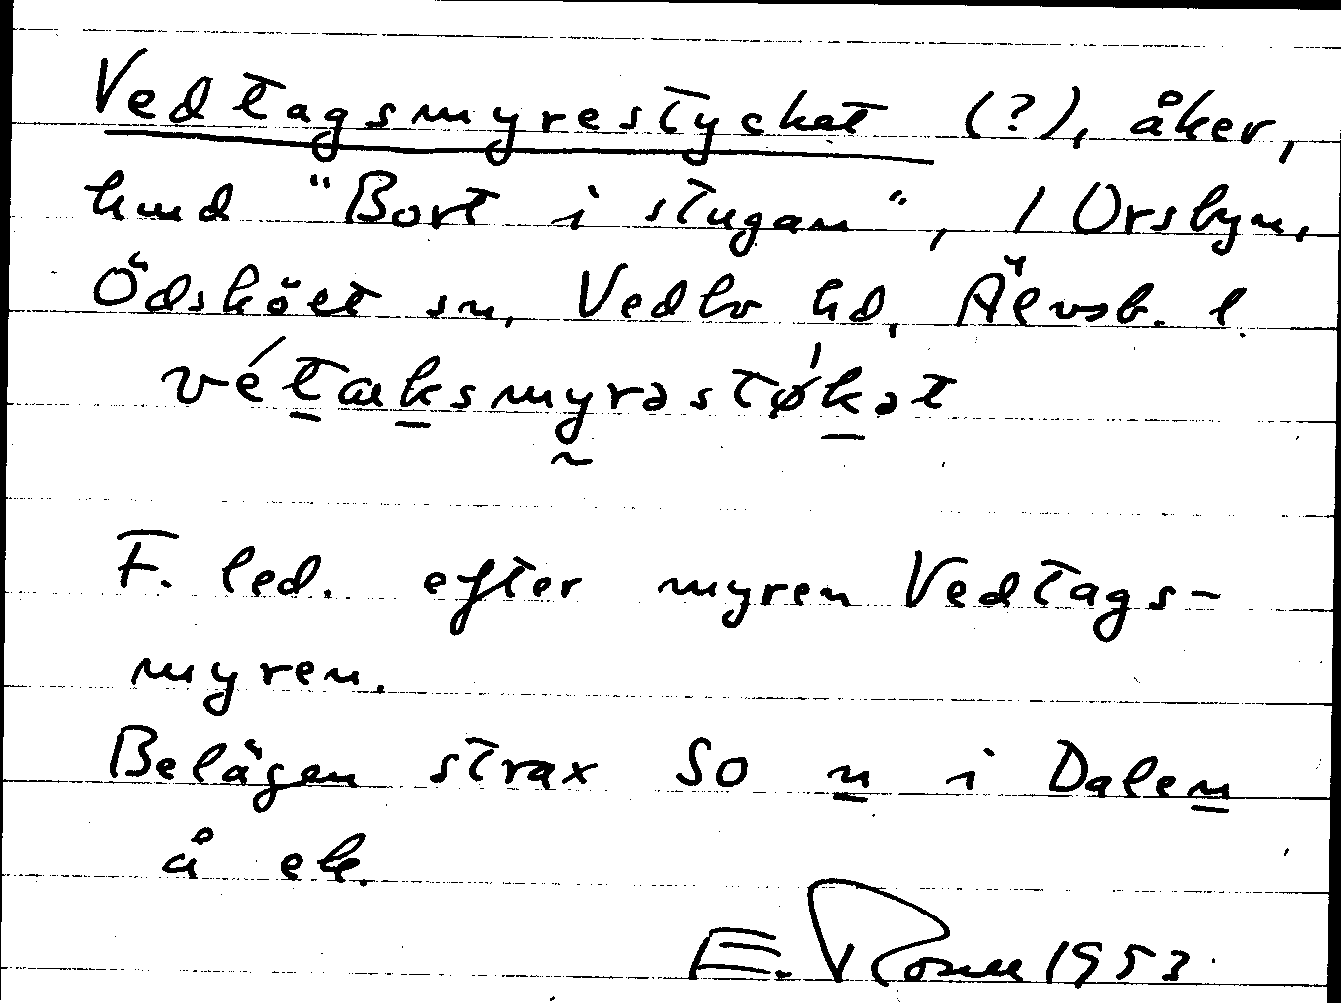 Vedtagsmyrestycket (?), åker,
hmd "Bort i stugan", 1 Orsbyn,
Ödskölt sn, Vedbo hd, Älvsb. l.
vétaksmyrəstǿkət
F. led. efter myren Vedtags-
myren.
Belägen strax SO n i Dalen
å ek.
E. 1953